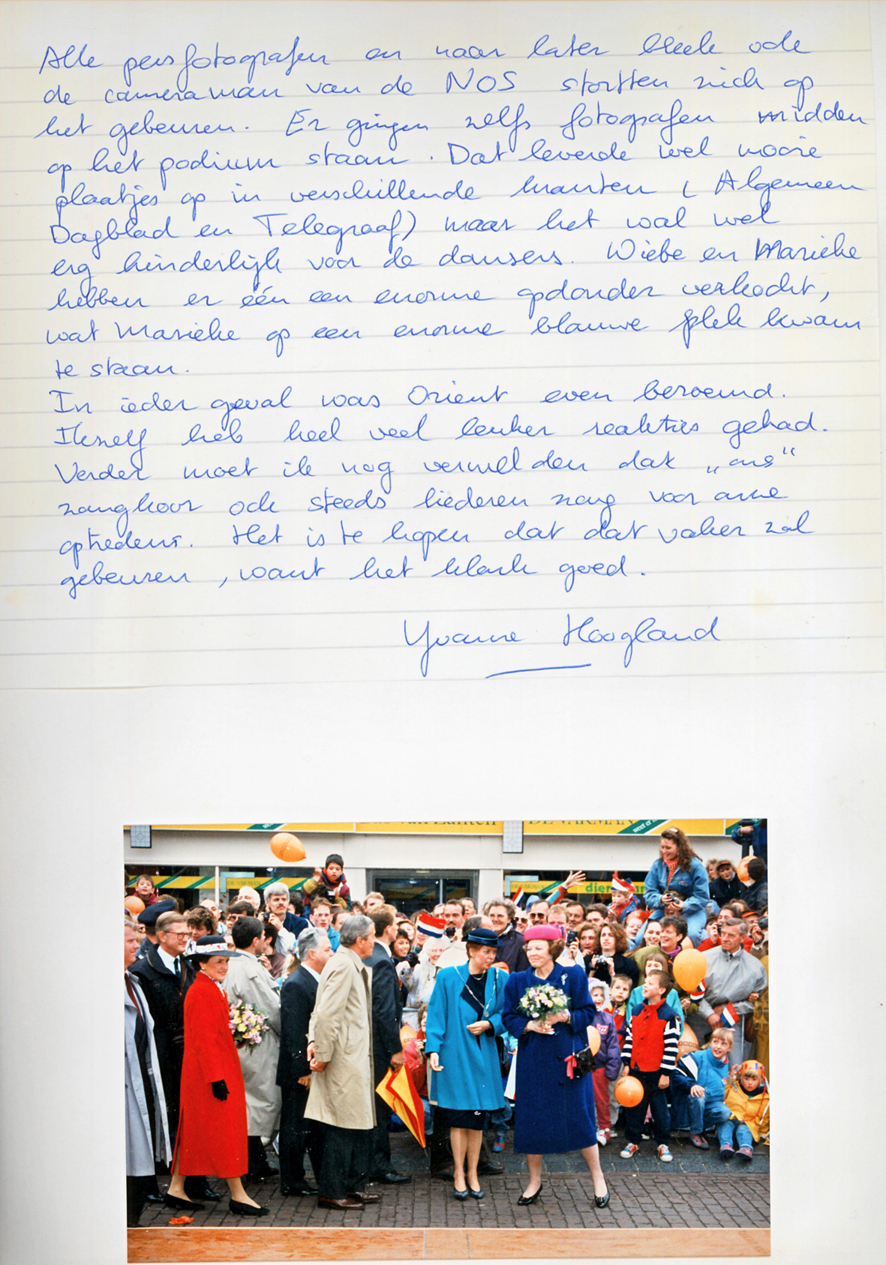 Alle persfotografen en naar later bleek ook
de cameraman van de NOS stortten zich op
het gebeuren. Er gingen zelfs fotografen midden
op het podium staan. Dat leverde wel mooie
plaatjes op in verschillende kranten ( Algemeen
Dagblad en Telegraaf) maar het wal wel
erg hinderlijk voor de dansers. Wiebe en Marieke
hebben er één een enorme opdonder verkocht,
wat Marieke op een enorme blauwe plek kwam
te staan.
In ieder geval was Orient even beroemd.
Ikzelf heb heel veel leuke reakties gehad.
Verder moet ik nog vermelden dat „ons“
zangkoor ook steeds liederen zong voor onze
optredens. Het is te hopen dat dat vaker zal
gebeuren, want het klonk goed.
Yvonne Hoogland
DE VAKMAN
dier